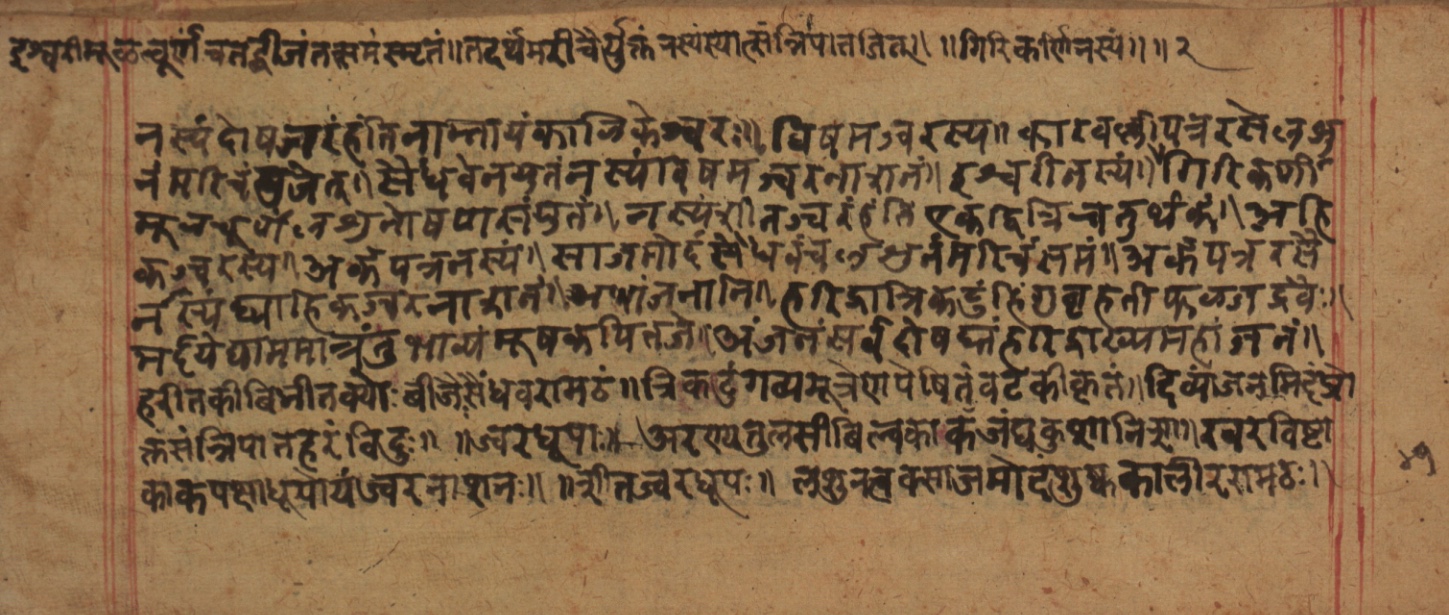 इश्वरीमूळचूर्णं च तद्बीजं तत्समं स्मृतं॥ तदर्धमरीचैर्युक्तं नस्यं स्यात्संन्निपातजित्॥ ॥ गिरिकर्णिनस्यं॥ ॥ २
नस्यं दोषज्वरं हंति नाम्नायं कान्निकेश्वरः॥ विषमज्वरस्य॥ कारवल्लीपत्ररसे लशु
नं मरिचं युजेत्॥ सैंधवेन युतं नस्यं विषमज्वरनाशनं॥ इश्वरीनस्यं॥ गिरिकर्णी
मूलचूर्णं लशुनोषणसंयुतं॥ नस्यं शीतज्वरं हंति एकद्वित्रिचातुर्थकं॥ अहि
कज्वरस्य॥ अर्कपत्रनस्यं॥ साजमोदं सैंधवं च लशुनं मरिचं समं॥ अर्कपत्ररसै
र्नस्यं द्याहिकज्वरनाशनं॥ अथांजनानि॥ हरिद्रात्रिकटुं हिंगु बृहतीफळजद्रवैः॥
मर्दये याममात्रं तु भाव्यं मूषकपित्तजे॥ अंजनं सर्वदोषघ्नं हरिद्राख्यामहांजनं॥
हरीतकीबिभीतक्योः बीजैसैंधवरामठं॥ त्रिकटुं गव्यमूत्रेण पेषितं वटकीकृतं॥ दिव्यांजनमिदं प्रो
क्तं संन्निपातहरं विदुः॥ ॥ ज्वरधूपाः॥ अरण्यतुलसीबिल्वकाकजंघकुशानि च॥ खरविष्टा
काकपक्षा धूपोयं ज्वरनाशनः॥ ॥ शीतज्वरधूपः॥ लशुनत्वक्साजमोदशुष्ककालीररामठः॥
४१